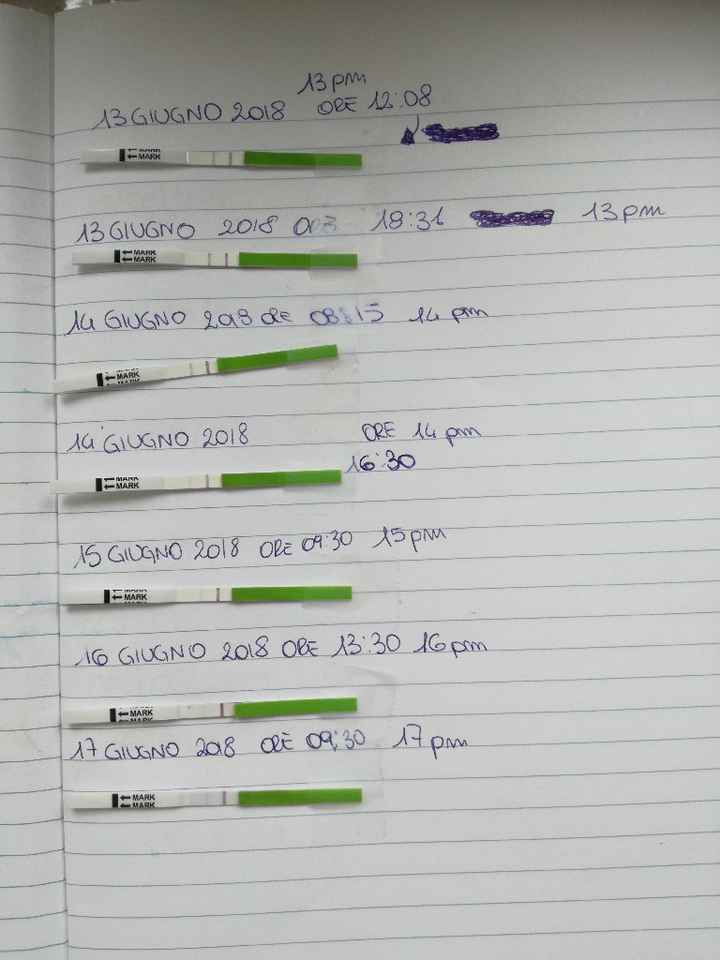 13 pm
13 GIUGNO 2018 ORE 12:08
MARK
13 GIUGNO 2018 18:31 13 pm
MARK
MARK
14 GIUGNO 2018 ORE 08:15 14 pm
MARK
14 GIUGNO 2018 ORE 14 pm
16:30
MARK
MARK
15 GIUGNO 2018 ORE 09:30 15 pm
MARK
16 GIUGNO 2018 ORE 13:30 16 pm
MARK
MARK
17 GIUGNO 2018 ORE 09:30 17 pm
MARK
MARK